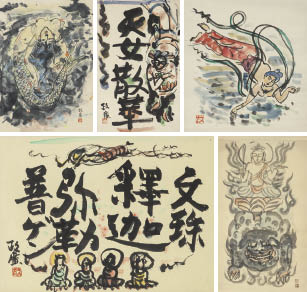 天女散華
文珠
釋迦
弥勒
普ゲン